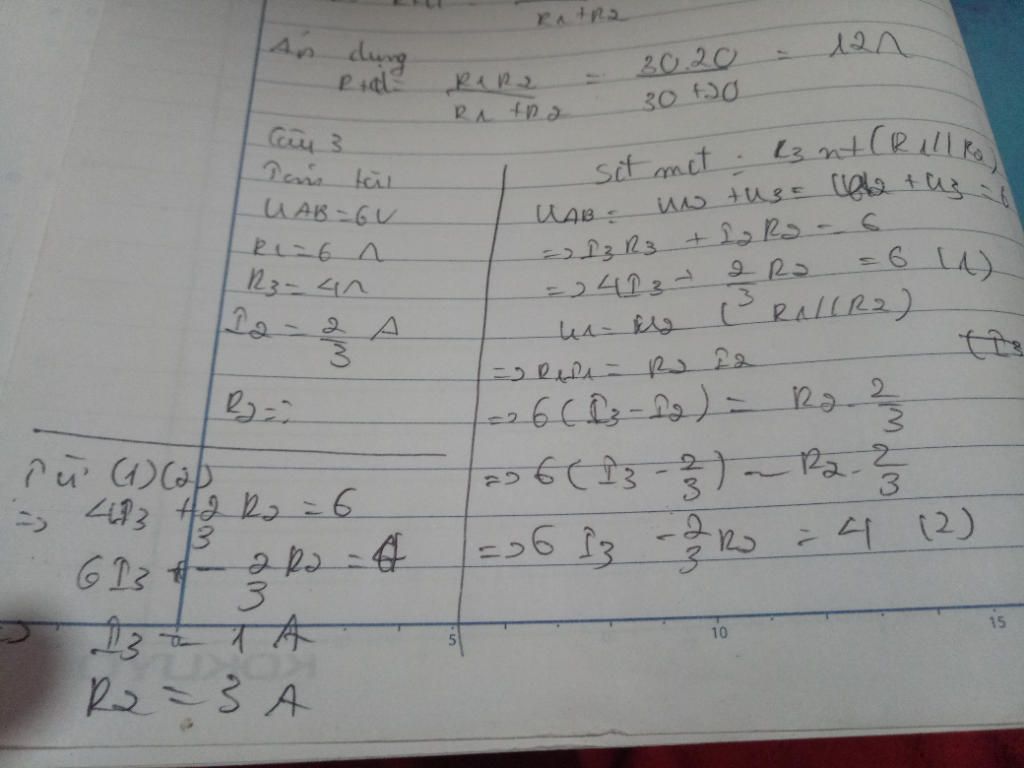 R1+R2
Áp dụng
Rtđ= R1R2 / R1+R2 = 30.20 / 30+20 = 12Ω
Câu 3
Tóm tắt
UAB=6V
R1=6Ω
R3=4Ω
I2=2/3 A
R2=?
Sơ đồ mạch: R3 nt (R1//R2)
UAB= U12+U3= U2+U3=6
=>I3R3+I2R2=6
=>4I3+2/3R2=6 (1)
U1=U2 (R1//R2)
=>R1I1=R2I2
(I3
=>6(I3-I2)=R2.2/3
=>6(I3-2/3)=R2.2/3
=>6I3-2/3R2=4 (2)
Từ (1)(2)
=>4I3+2/3R2=6
6I3-2/3R2=4
=>I3=1A
R2=3A
5 10 15
KOKUYO